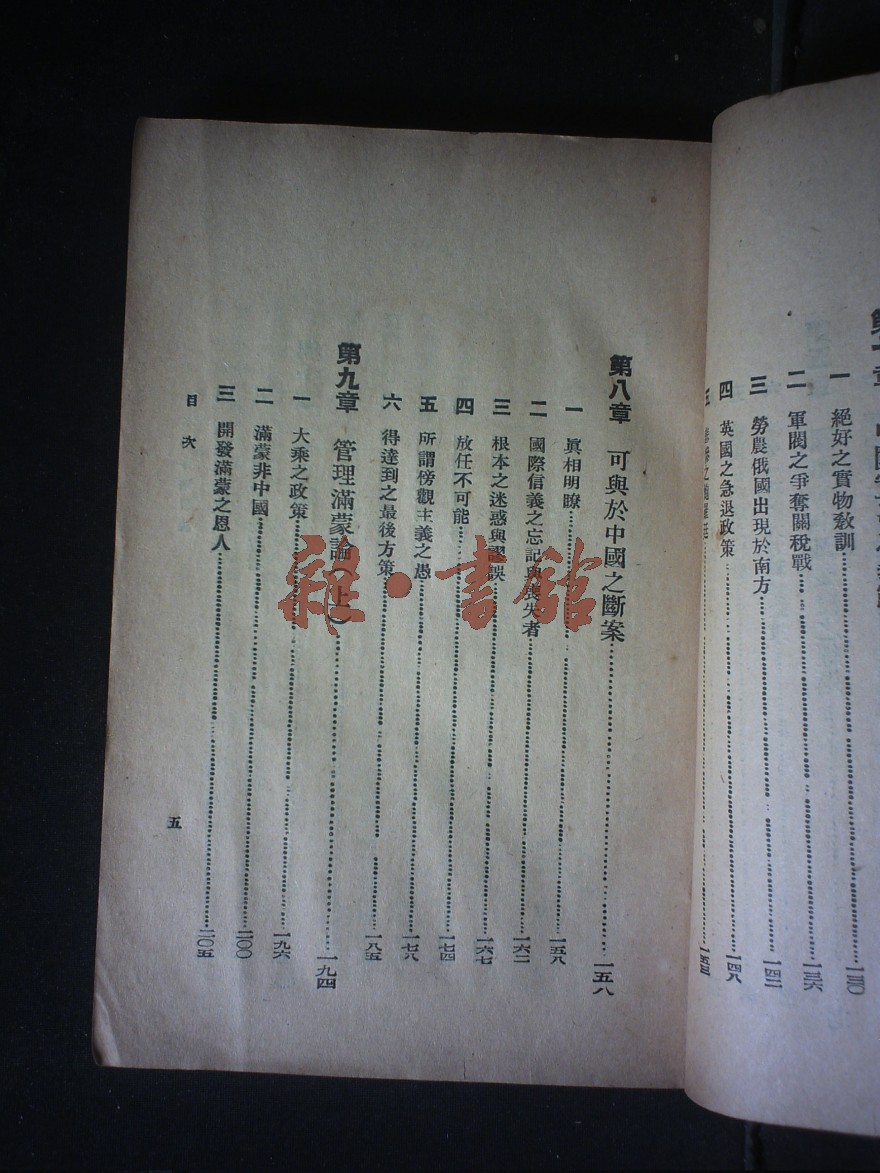 一 絕好之實物教訓 一三〇
二 軍閥之爭奪關稅戰 一三六
三 勞農俄國出現於南方 一四二
四 英國之急退政策 一四八
一五三
第八章 可與於中國之斷案 一五八
一 眞相明瞭 一五八
二 國際信義之忘記與喪失者 一六二
三 根本之迷惑與謬誤 一六七
四 放任不可能 一七四
五 所謂傍觀主義之愚 一七八
六 得達到之最後方策 一八五
第九章 管理滿蒙論(上) 一九四
一 大乘之政策 一九六
二 滿蒙非中國 二〇〇
三 開發滿蒙之恩人 二〇五
目次
五
雜·書館